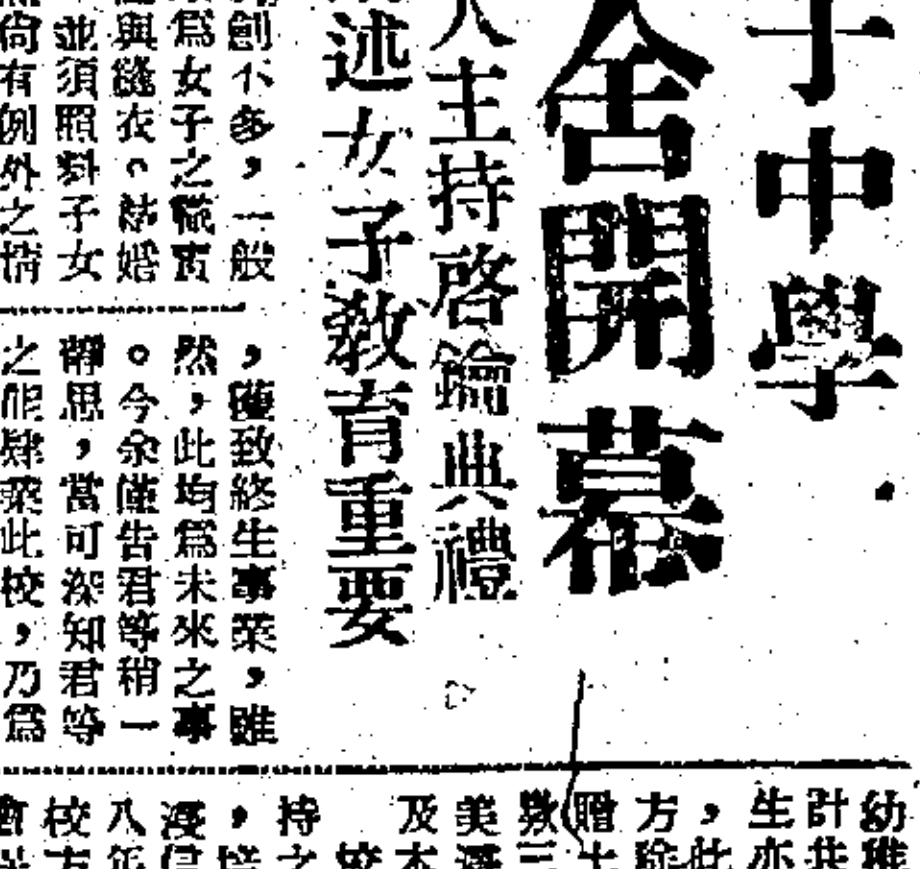 子中學
舍開幕
人主持啓鑰典禮
述女子教育重要
創不多，一般
為女子之職責
與縫衣。結婚
並須照料子女
尚有例外之情
，獲致終生事業，雖
然，此均爲未來之事
。今余僅告君等稍一
靜思，當可深知君等
之能肄業此校，乃爲
幼稚
計共
生亦
，此
方除
贈土
三
美
及本
持之
，
八年
校方